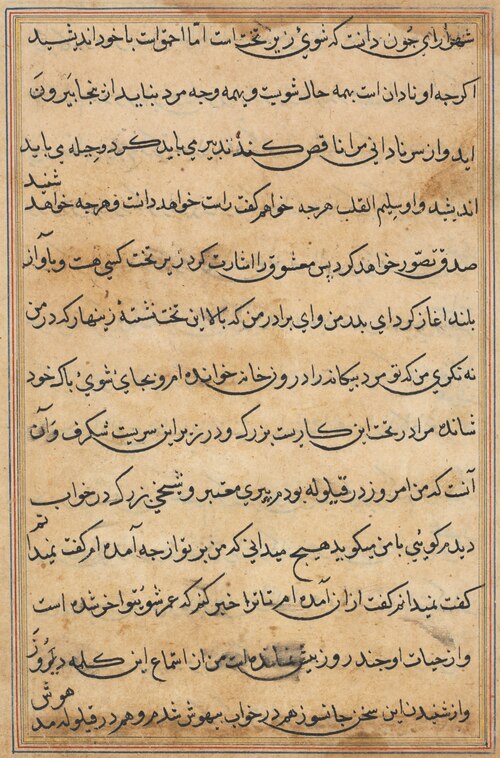 شهرآرای چون دانست که شوی زیر تخت است اما احمق است با خود اندیشید
اکرجه او نادان است بهمه حال شویست و بهمه وجه مرد بناید از نجا بیرون
اید و از سر نادانی مرا ناقص کند تدبیر می باید کرد و حیله می باید
اندیشید و او سلیم القلب هرجه خواهم کفت راست خواهد دانست و هرجه خواهد شنید
صدق تصور خواهد کرد پس معشوق را اشارت کرد زیر تخت کسی هست و باواز
بلند اغاز کرد ای بدر من و ای برادر من که بالا این تخت نشستهٔ زینهار که در من
نه نکری من که تو مرد بیکانه را در روز خانه خوانده ام و بجای شوی باک خود
شانده مرا در تحت این کاریست بزرک و در زیر این سریست شکرف و آن
آنست که من امروز در قیلوله بودم پیری معتبر و شیخی بزرک در خواب
دیدم کویی با من میکوید هیچ میدانی که من بر تو از جه آمده ام کفتم نمیدانم
کفت نمیدانم کفت از ان آمده ام تا ترا خبر کنم که عمر شوی تو اخر شده است
و از حیات او جند روز بیش نمانده است من از استماع این کلمه دلروز
و از شنیدن این سخن جانسوز هم در خواب بیهوش شدم و هم در قیلوله مدهوش